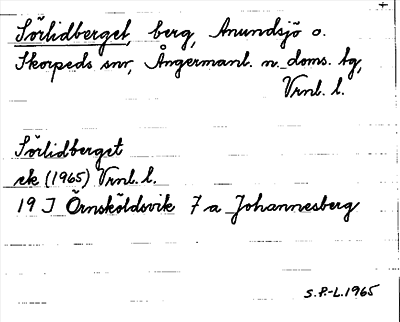 Sörlidberget, berg, Anundsjö o.
Skorpeds snr, Ångermanl. n. doms. tg,
Vrnl. l.
Sörlidberget
ek (1965) Vrnl. l.
19 J Örnsköldsvik 7 a Johannesberg
S.P.-L. 1965